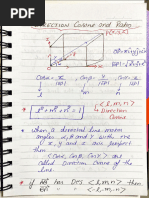 DIRECTION Cosine and Ratio
P(x, y, z)
Cosα = x/|OP| , Cosβ = y/|OP| , Cosγ = z/|OP|
l² + m² + n² = 1
→ Direction Cosine
• When a directed line making
angles α, β and γ with +ve
x, y and z axis respect
then
< Cosα, Cosβ, Cosγ > are
called Direction Cosine of the
line.
• If AB has DRs < l, m, n > then
< -l, -m, -n >